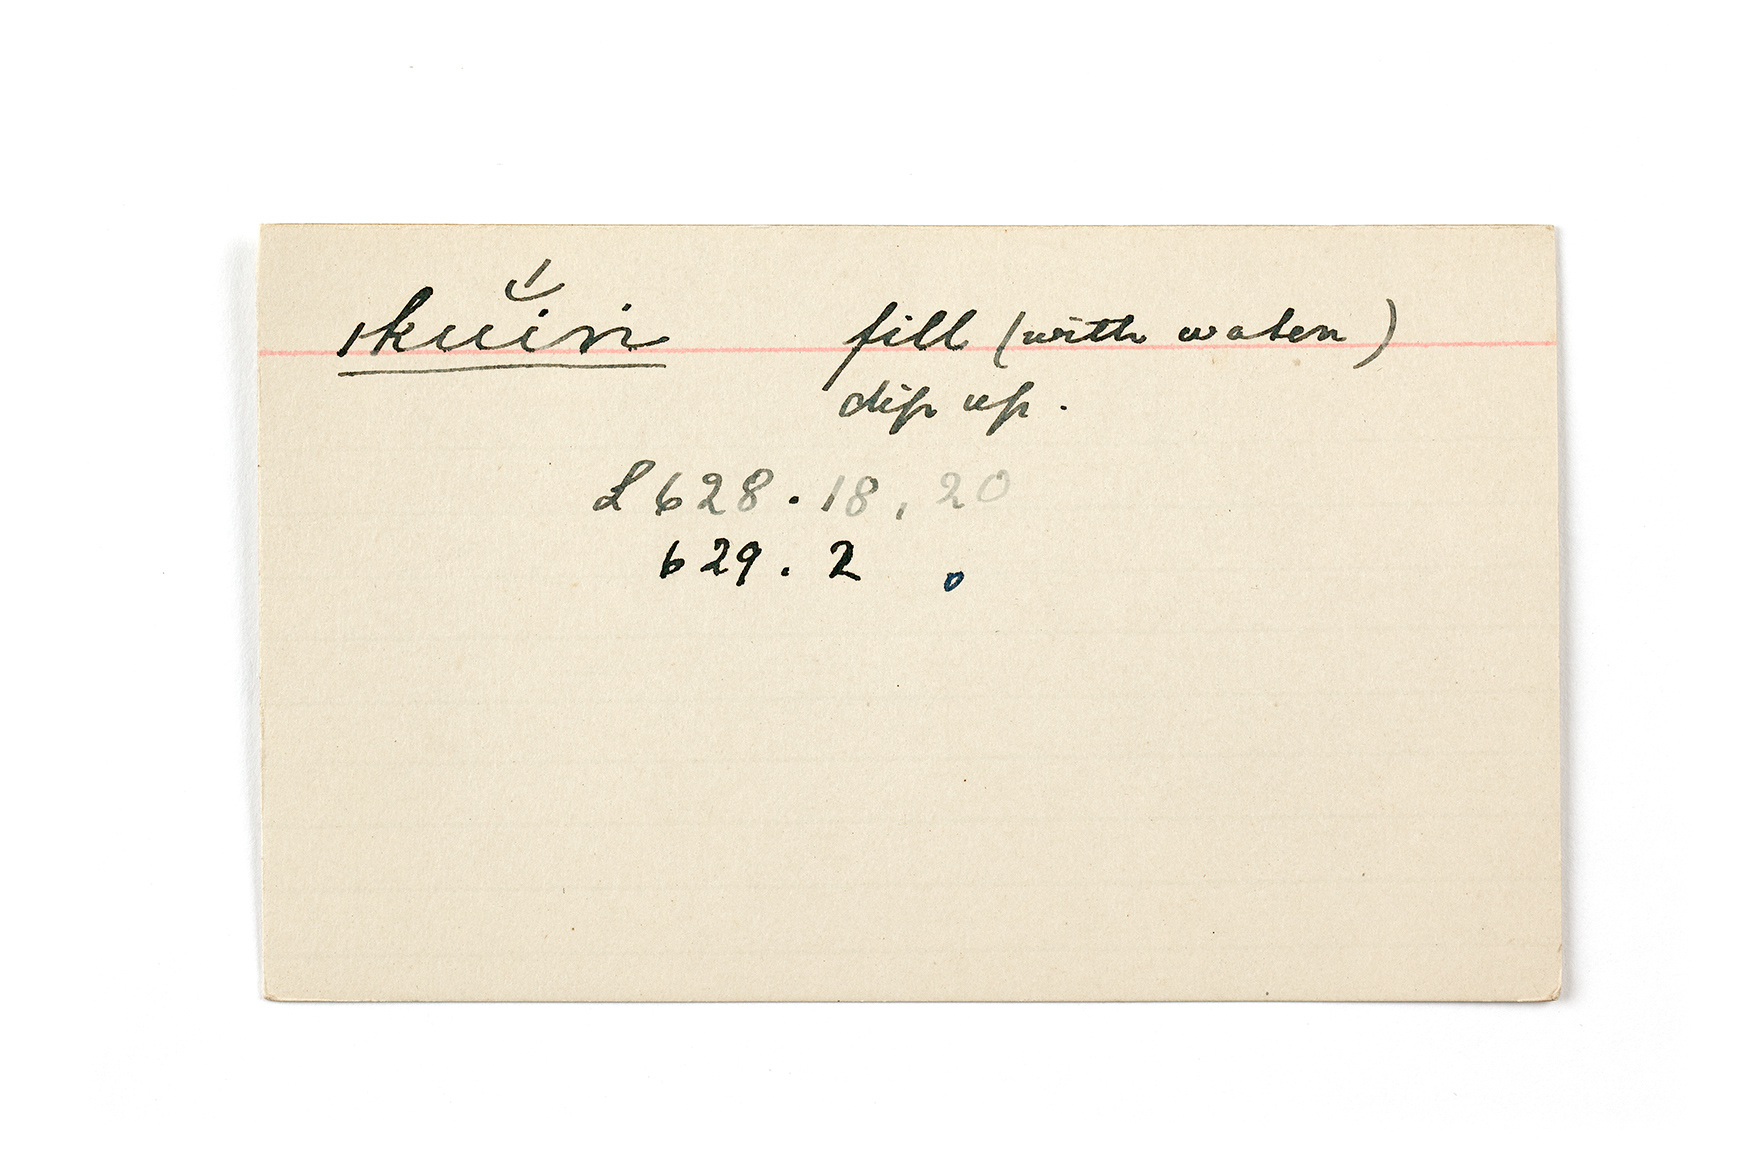 ǀkuĭ́ri fill (with water)
dip up.
L 628. 18, 20
629. 2 o